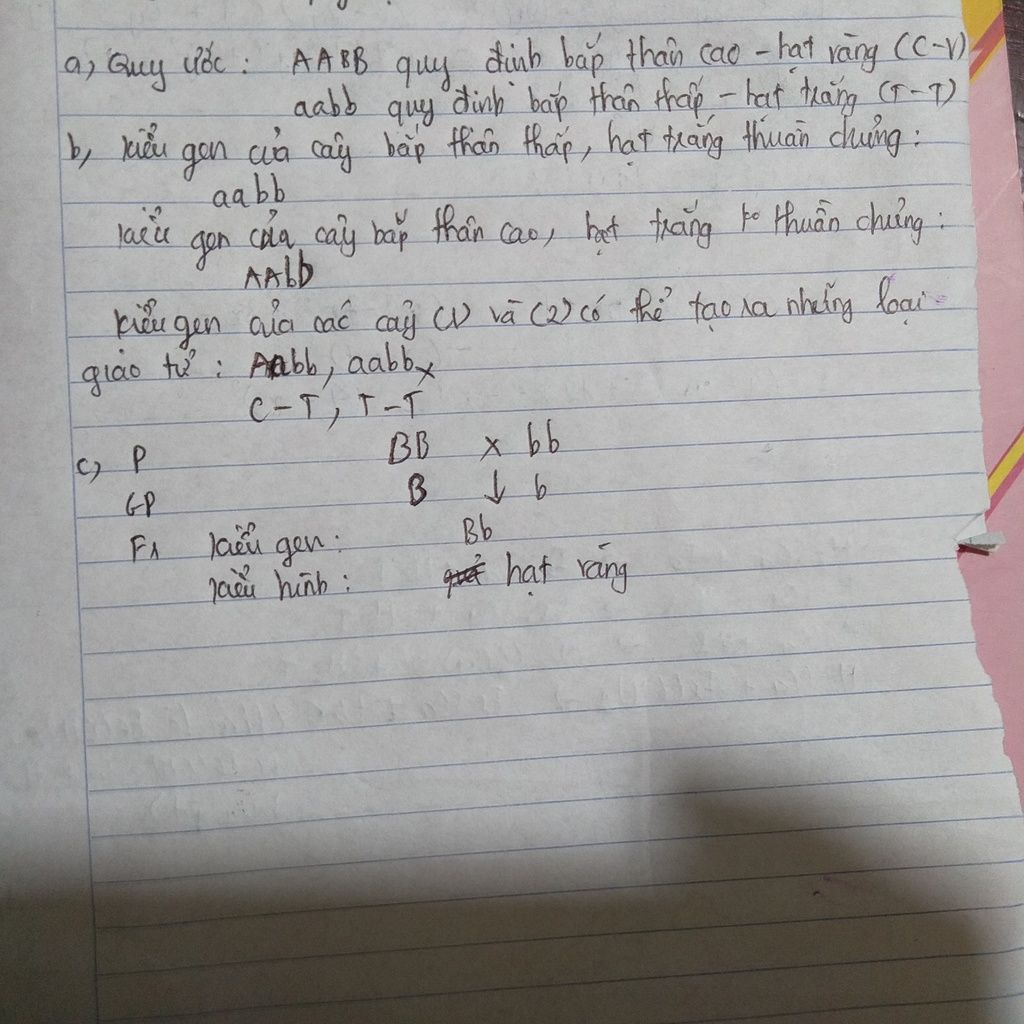 a, Quy ước: AABB quy định bắp thân cao - hạt vàng (C-V)
aabb quy định bắp thân thấp - hạt trắng (T-T)
b, kiểu gen của cây bắp thân thấp, hạt trắng thuần chủng:
aabb
kiểu gen của cây bắp thân cao, hạt trắng ko thuần chủng:
AAbb
kiểu gen của các cây (1) và (2) có thể tạo ra những loại
giao tử: Aabb, aabb
C-T, T-T
c, P BB x bb
GP B ↓ b
F1 kiểu gen: Bb
kiểu hình: hạt vàng